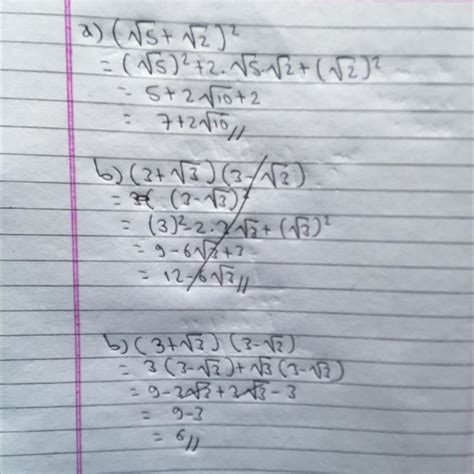 a) (√5 + √2)²
= (√5)² + 2 . √5 . √2 + (√2)²
= 5 + 2√10 + 2
= 7 + 2√10 //
b) (3 + √3) (3 - √3)
= (3 - √3)
= (3)² - 2 . 3 √3 + (√3)²
= 9 - 6√3 + 3
= 12 - 6√3 //
b) (3 + √3) (3 - √3)
= 3 (3 - √3) + √3 (3 - √3)
= 9 - 3√3 + 3√3 - 3
= 9 - 3
= 6 //